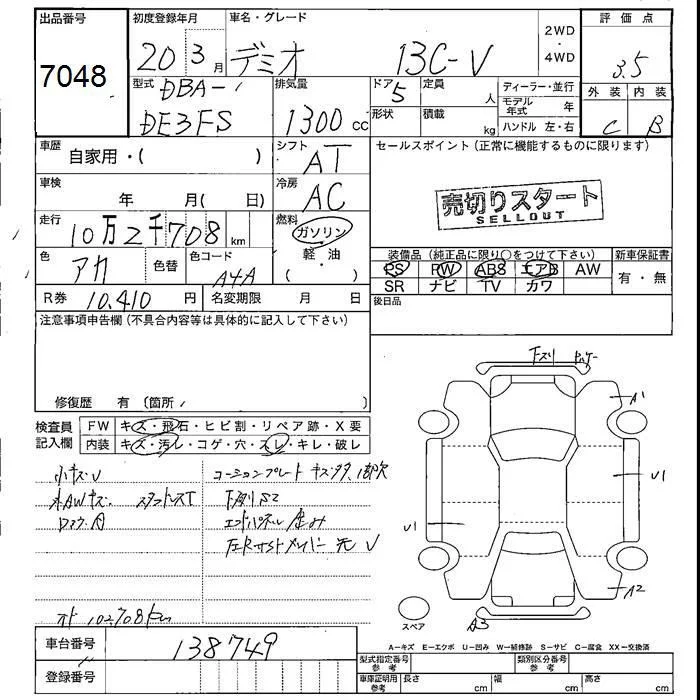 出品番号 初度登録年月 車名・グレード 評価点
7048 20 3月 デミオ 13C-V 2WD・4WD 3.5
型式 DBA- 排気量 ドア 5 定員 人 ディーラー・並行 外装 内装
DE3FS 1300cc 形状 積載 kg モデル年式 年 C B
ハンドル 左・右
車歴 自家用・( ) シフト AT セールスポイント(正常に機能するものに限ります)
車検 年 月( 日) 冷房 AC 売切りスタート
SELLOUT
走行 10万2千708km 燃料 ガソリン
軽・油
( )
装備品(純正品に限り○をつけて下さい) 新車保証書
色 アカ 色替 色コード A4A PS PW ABS エアB AW 有・無
SR ナビ TV カワ
R券 10,410円 名変期限 月 日 後日品
注意事項申告欄(不具合内容等は具体的に記入して下さい)
修復歴 有〔箇所 〕
検査員記入欄 FW キズ・飛石・ヒビ割・リペア跡・X要
内装 キズ・汚レ・コゲ・穴・スレ・キレ・破レ
小キズU コーションプレート
スタッドレスT 下廻りS2
エンドパネル
A1
U1
U1
A2
A3
スペア
車台番号 138749
登録番号
A=キズ E=エクボ U=凹み W=補修跡 S=サビ C=腐食 XX=交換済
型式指定番号 参考 類別区分番号 参考
車庫証明用 参考 長さ cm 幅 cm 高さ cm